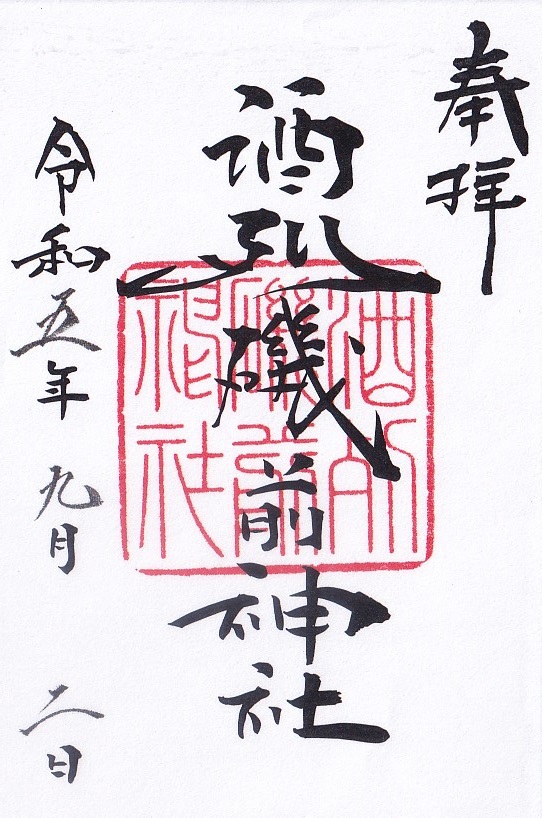 奉拝
酒列磯前神社
令和五年九月二日
酒列
磯前
神社